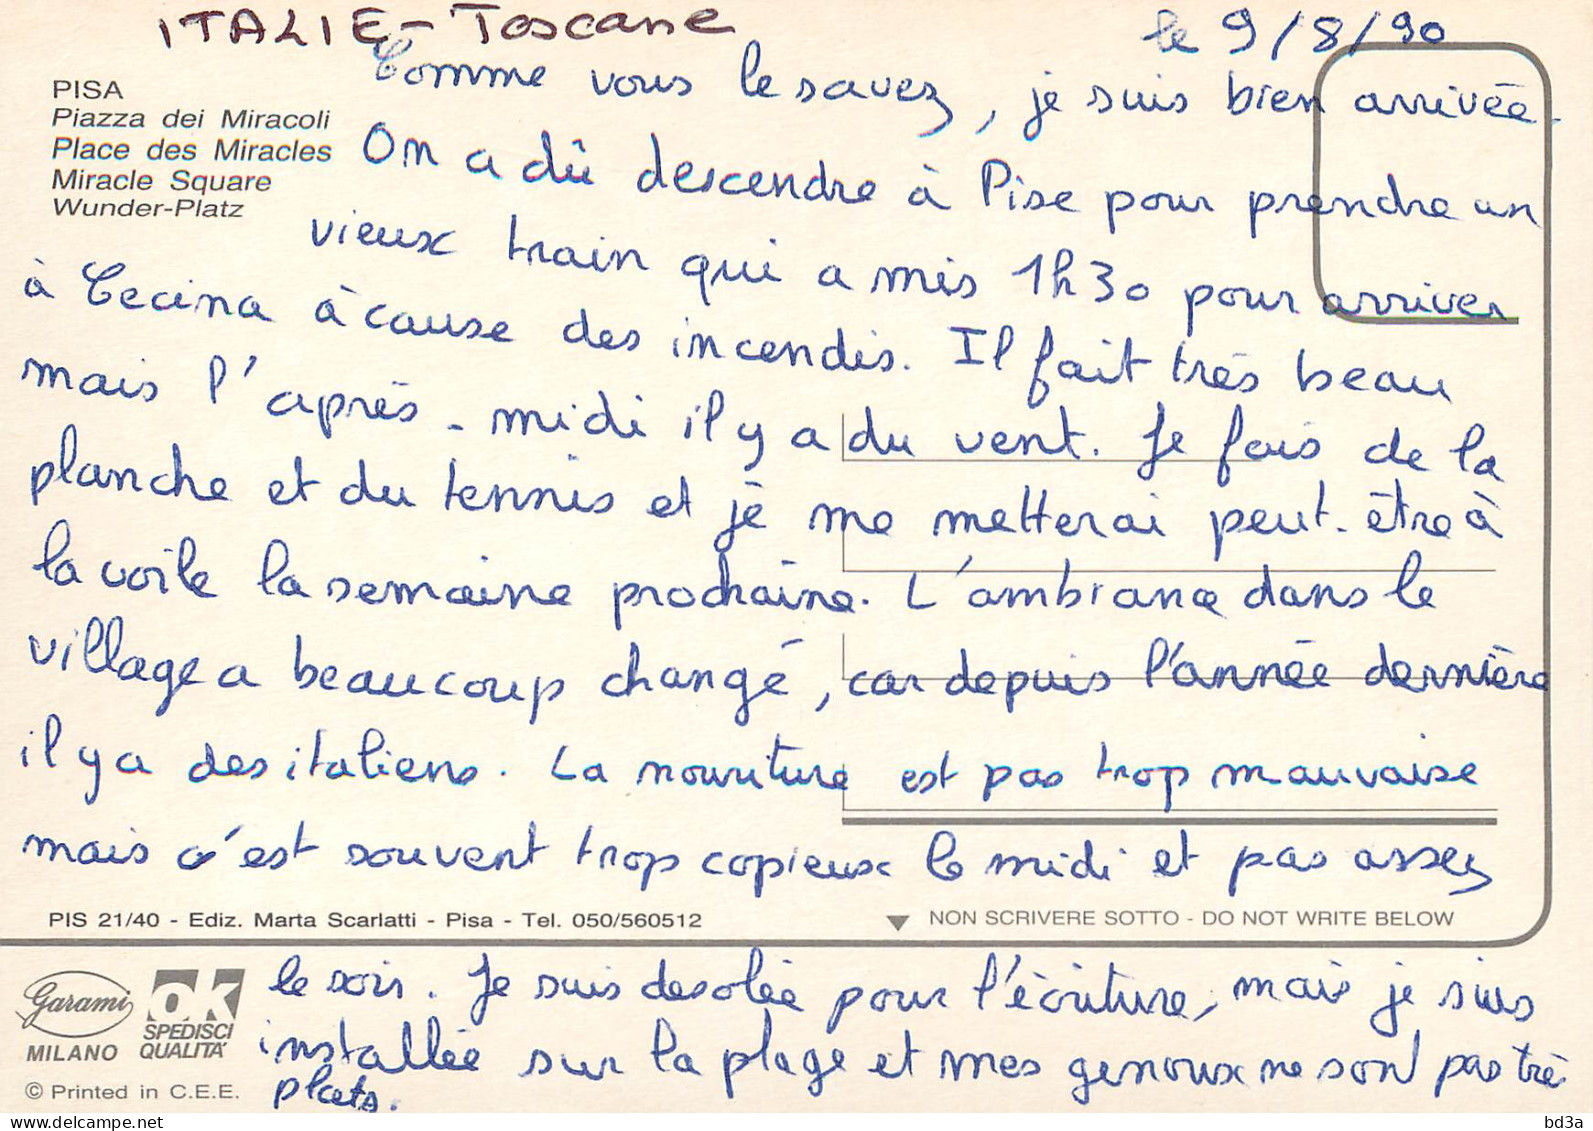 ITALIE - Toscane
le 9/8/90
PISA
Piazza dei Miracoli
Place des Miracles
Miracle Square
Wunder-Platz
Comme vous le savez, je suis bien arrivée.
On a dû descendre à Pise pour prendre un
vieux train qui a mis 1h30 pour arriver
à Cecina à cause des incendis. Il fait très beau
mais l'après-midi il y a du vent. Je fais de la
planche et du tennis et je me metterai peut-être à
la voile la semaine prochaine. L'ambiance dans le
village a beaucoup changé, car depuis l'année dernière
il y a des italiens. La nourriture est pas trop mauvaise
mais c'est souvent trop copieux le midi et pas assez
PIS 21/40 - Ediz. Marta Scarlatti - Pisa - Tel. 050/560512
NON SCRIVERE SOTTO - DO NOT WRITE BELOW
le soir. Je suis desolée pour l'écriture, mais je suis
installée sur la plage et mes genoux ne sont pas très
plats.
Garami
MILANO
OK
SPEDISCI
QUALITA'
© Printed in C.E.E.
bd3a